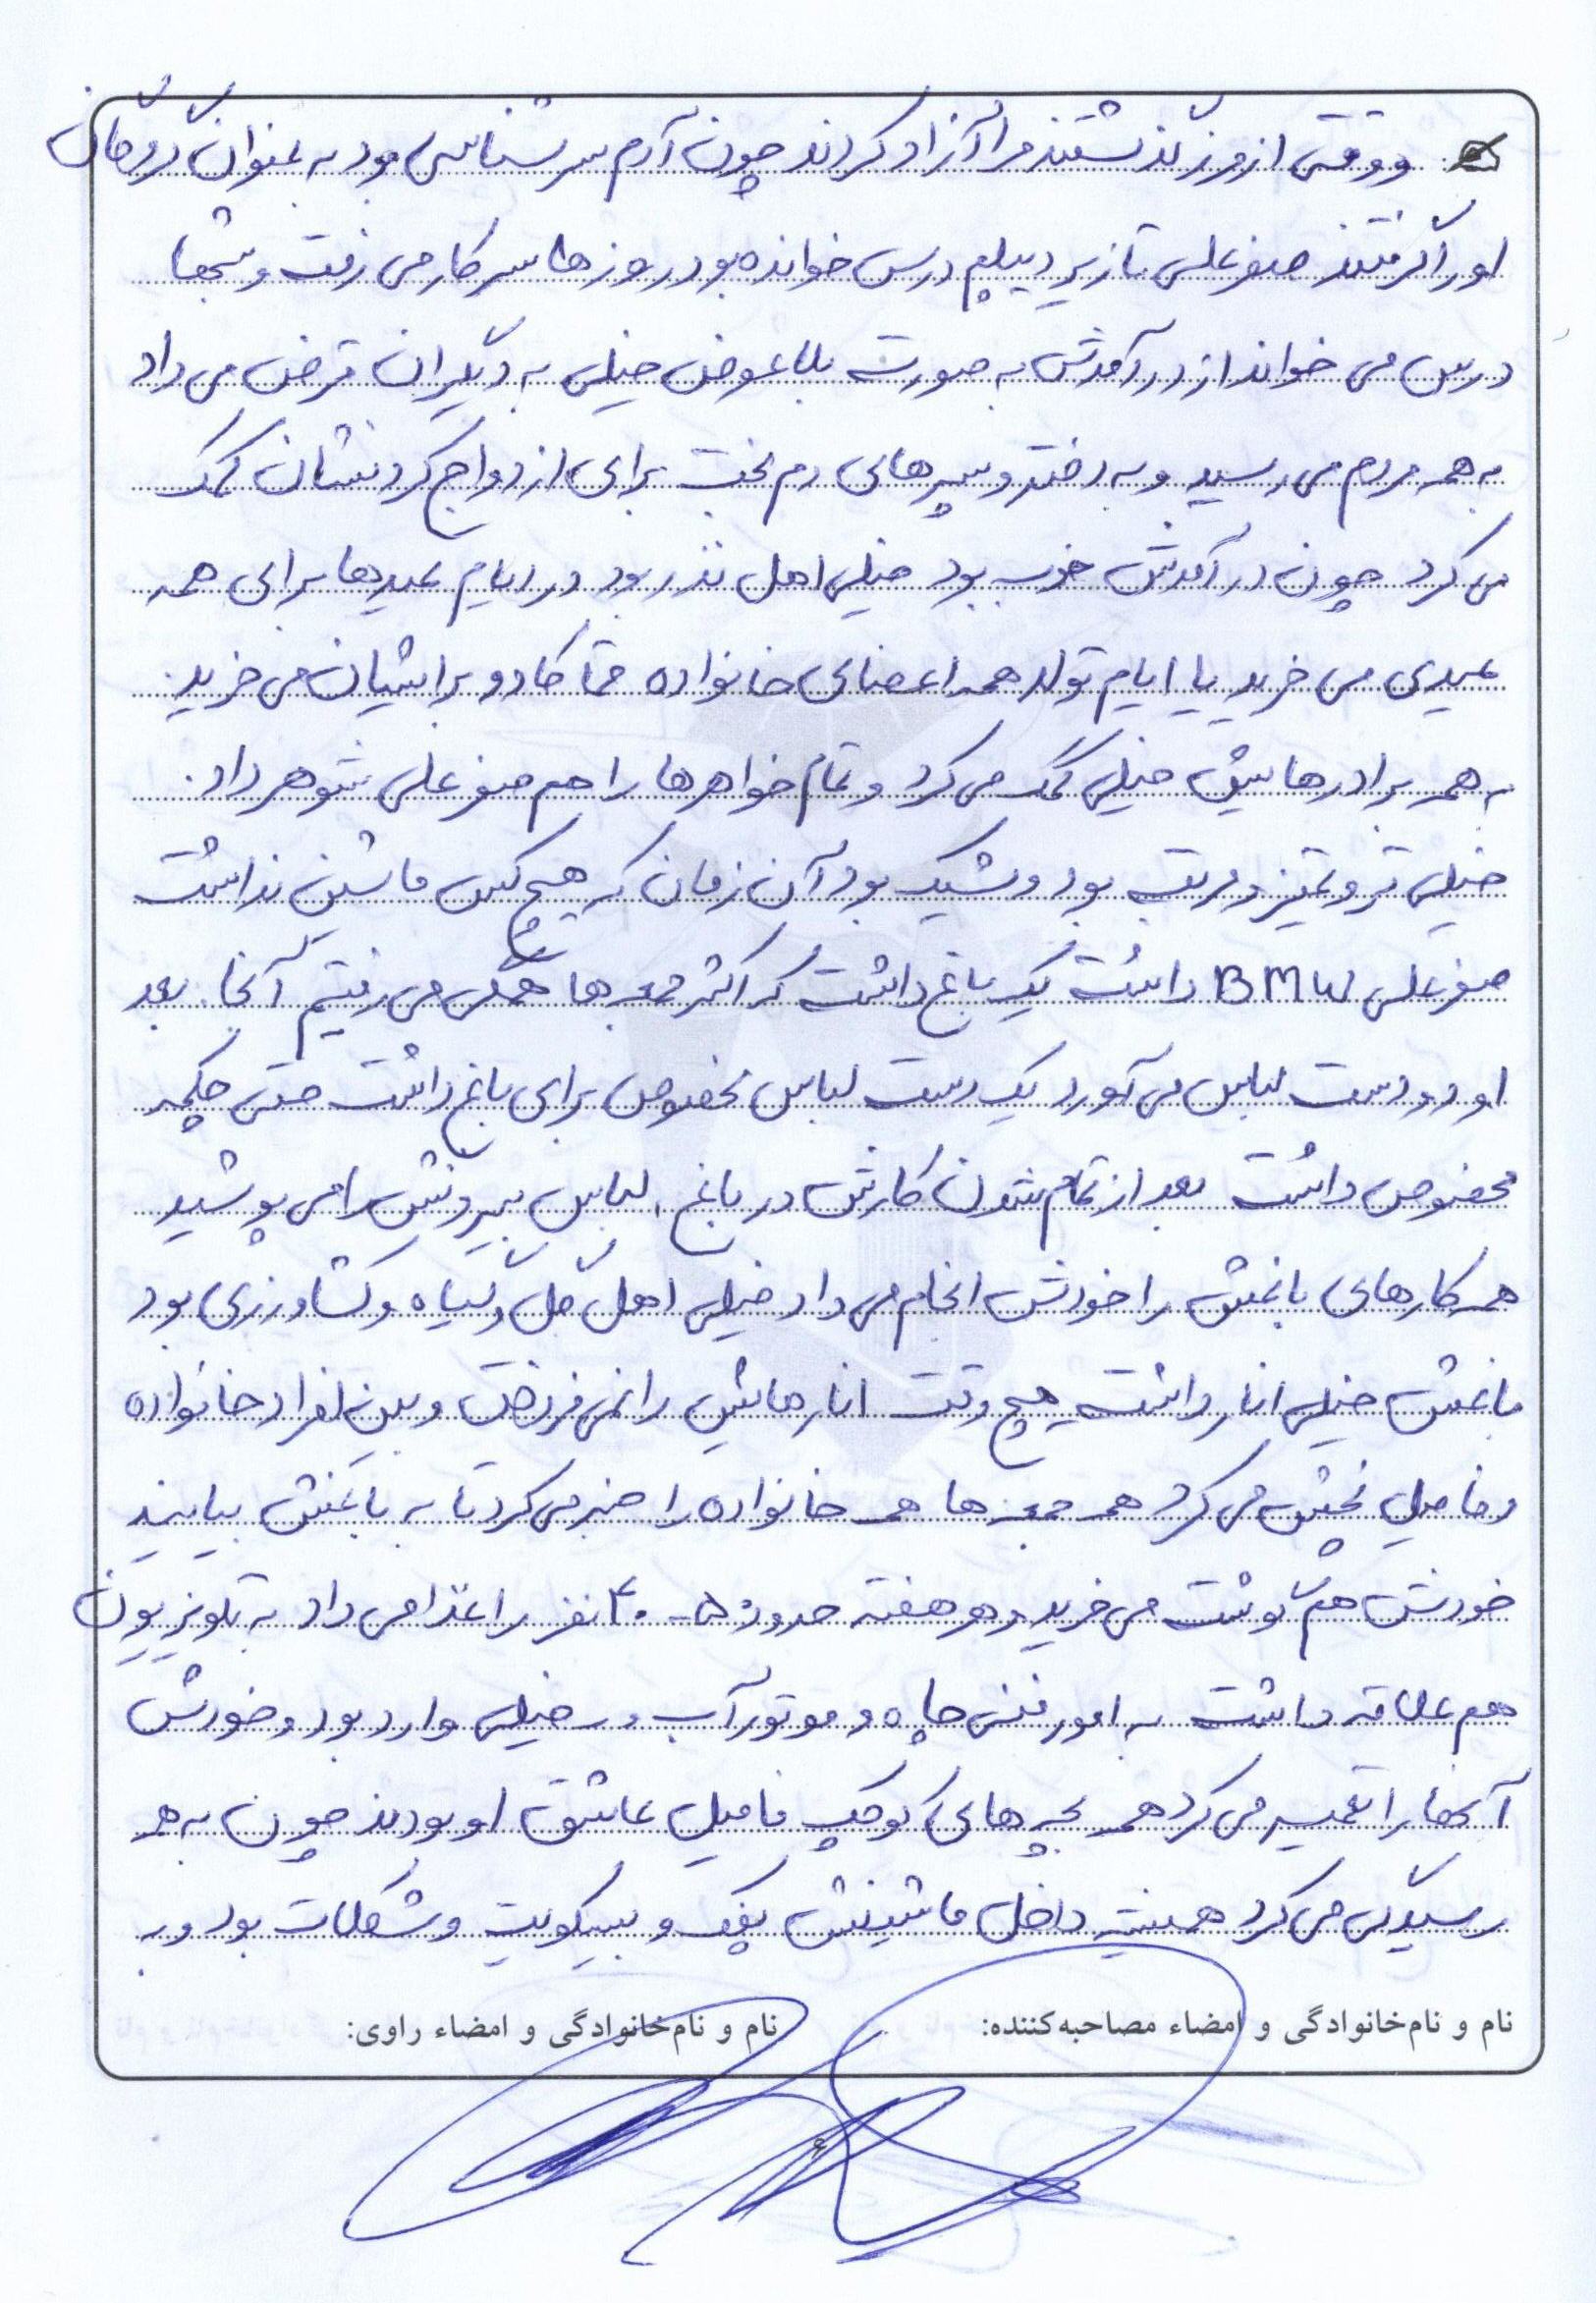 و وقتی از مرز گذشتند مرا آزاد کردند چون آدم سرشناسی بود به عنوان گروگان
او را گرفتند صفرعلی تا زیر دیپلم درس خوانده بود روزها سر کار می رفت و شبها
درس می خواند از درآمدش به صورت بلاعوض خیلی به دیگران قرض می داد
به همه مردم می رسید و به دختر و پسرهای دم بخت برای ازدواج کردنشان کمک
می کرد چون درآمدش خوب بود خیلی اهل نذر بود در ایام عیدها برای همه
عیدی می خرید یا ایام تولد همه اعضای خانواده حتماً کادو برایشان می خرید.
به همه برادرهایش خیلی کمک می کرد و تمام خواهرها را هم صفرعلی شوهر داد.
خیلی تر و تمیز و مرتب بود و شیک بود آن زمان که هیچ کس ماشین نداشت
صفرعلی BMW داشت یک باغ داشت که اکثر جمعه ها همگی می رفتیم آنجا. بعد
او دو دست لباس می آورد یک دست لباس مخصوص برای باغ داشت حتی چکمه
مخصوص داشت بعد از تمام شدن کارش در باغ، لباس بیرونش را می پوشید
همه کارهای باغش را خودش انجام می داد خیلی اهل گل و گیاه و کشاورزی بود
باغش خیلی انار داشت هیچ وقت انارهایش را نمی فروخت و بین افراد خانواده
و فامیل پخش می کرد همه جمعه ها همه خانواده را خبر می کرد تا به باغش بیایند
خودش هم گوشت می خرید و هر هفته حدود ۵۰-۴۰ نفر را غذا می داد به تلویزیون
هم علاقه داشت به امور فنی چاه و موتور آب و ... خیلی وارد بود و خودش
آنها را تعمیر می کرد همه بچه های کوچک فامیل عاشق او بودند چون به همه
رسیدگی می کرد همیشه داخل ماشینش پفک و بیسکویت و شکلات بود و به
نام و نام‌خانوادگی و امضاء مصاحبه‌کننده: نام و نام‌خانوادگی و امضاء راوی:
۶